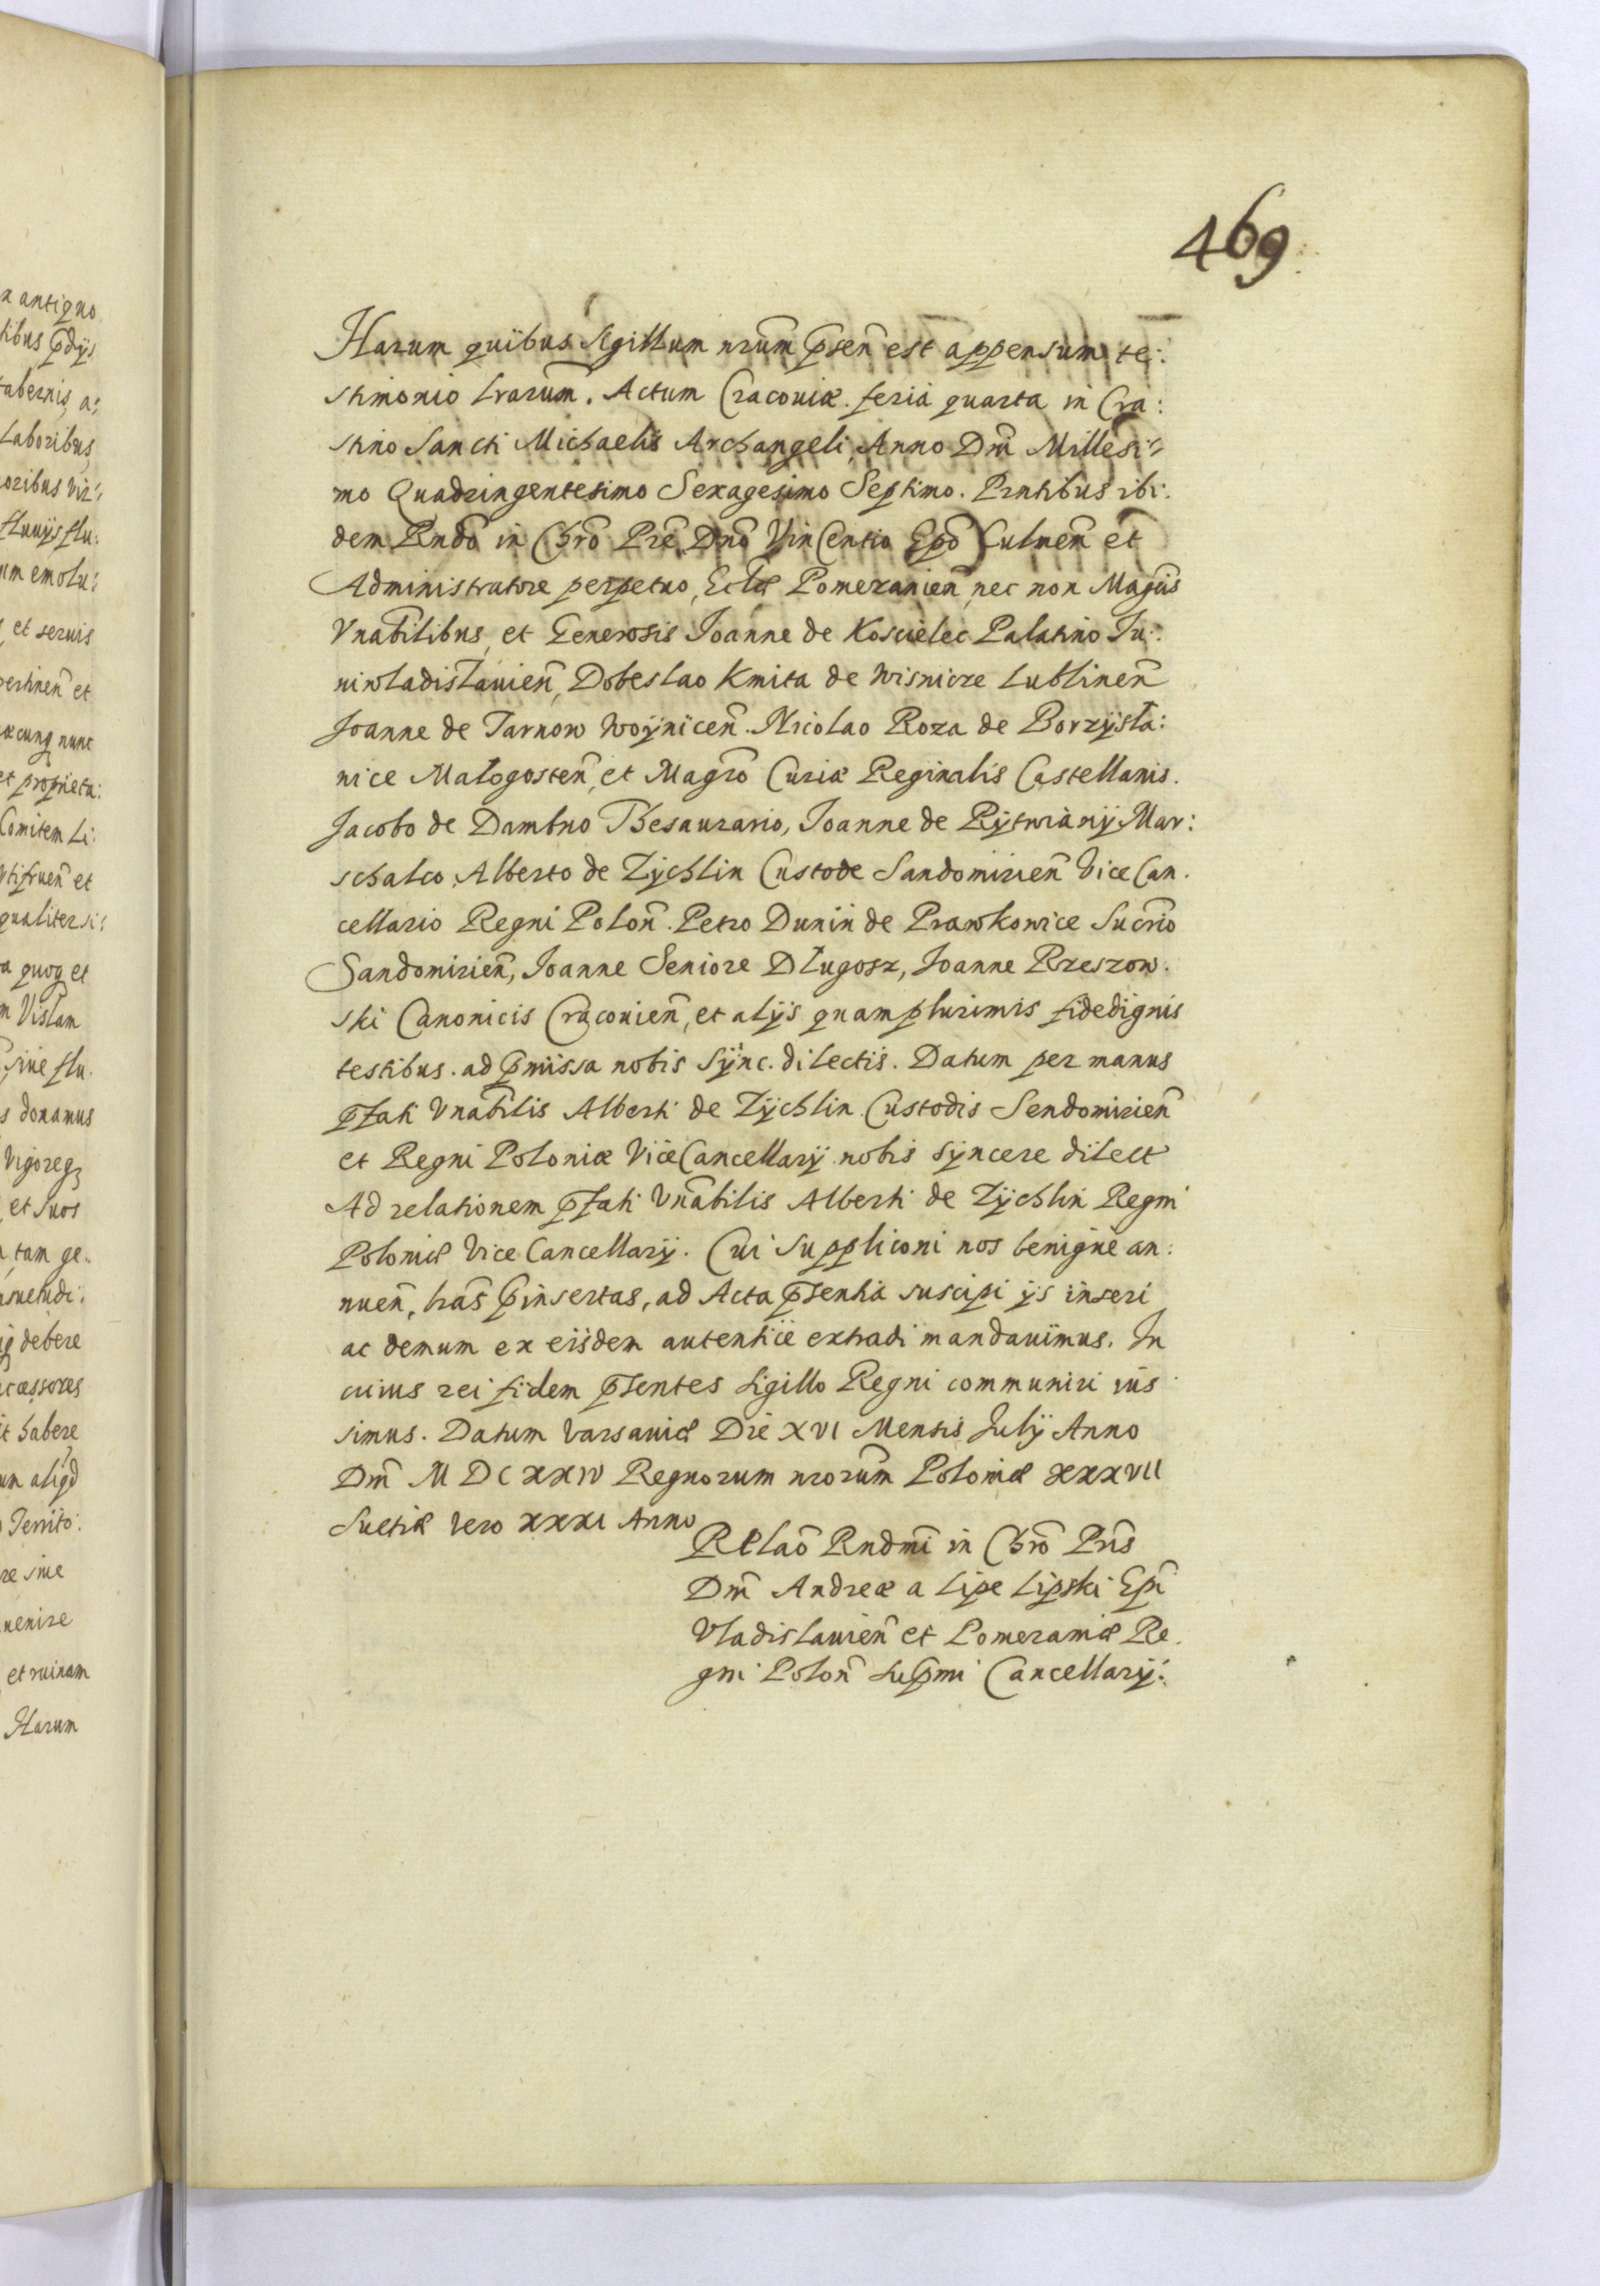 469
Harum quibus Sigillum nrum p̄sen̄ est appensum te:
stimonio lrarum. Actum Cracoviæ feria quarta in Cra:
stino Sancti Michaelis Archangeli, Anno Dnī Millesi:
mo Quadringentesimo Sexagesimo Septimo. Prntibus ibi:
dem Rndo in Chro Pre Dno Vincentio Epo Culmen̄ et
Administratore perpetuo, Eclæ Pomeranien̄, nec non Magcis
Vnabilibus, et Generosis Joanne de Koscielec Palatino Ju:
niwladislavien̄, Dobeslao Kmita de Wisnicze Lublinen̄
Joanne de Tarnow Woynicen̄. Nicolao Roza de Borzysła:
nice Małogosten̄, et Magro Curiæ Reginalis Castellanis.
Jacobo de Dambno Thesaurario, Joanne de Rytwiany Mar:
schalco, Alberto de Zychlin Custode Sandomirien̄ Vice Can.
cellario Regni Polon̄. Petro Dunin de Prawkowice Sucrio
Sandomirien̄, Joanne Seniore Długosz, Joanne Rzeszow.
ski Canonicis Cracovien̄, et alys quamplurimis fidedignis
testibus. ad p̄missa nobis Sync. dilectis. Datum per manus
p̄fati Vnabilis Alberti de Zychlin Custodis Sendomirien̄
et Regni Poloniæ ViceCancellary nobis syncere dilect
Ad relationem p̄fati Vnabilis Alberti de Zychlin Regni
Poloniæ Vice Cancellary. Cui Suppliconi nos benigne an:
nuen̄, lras p̄insertas, ad Acta p̄sentia suscipi ys inseri
ac demum ex eisdem autentice extradi mandavimus. In
cuius rei fidem p̄sentes Sigillo Regni communiri ius
simus. Datum Varsaviæ Die XVI Mensis July Anno
Dnī M DC XXIV Regnorum nrorum Poloniæ XXXVII
Suetiæ vero XXXI Anno
Relao Rndmi in Chro Pris
Dnī Andreæ a Lipe Lipski Epi
Vladislavien̄ et Pomeraniæ Re.
gni Polon̄ Sup̄mi Cancellary.
a antiquo
tibus p̄dys
tabernis, a:
Laboribus
oribus Vir:
fluuys flu:
um emolu:
et seruis
pertinen̄ et
æcunq nunc
et proprieta:
Comitem Li:
Vtifruen̄ et
qualiter si:
a quoq et
m Vislam
siue flu.
s donamus
Vigoreq
et suos
tam ge.
nsuetudi:
debere
cæssores
it habere
um aliqd
Territo:
re siue
uenire
et ruinam
Harum